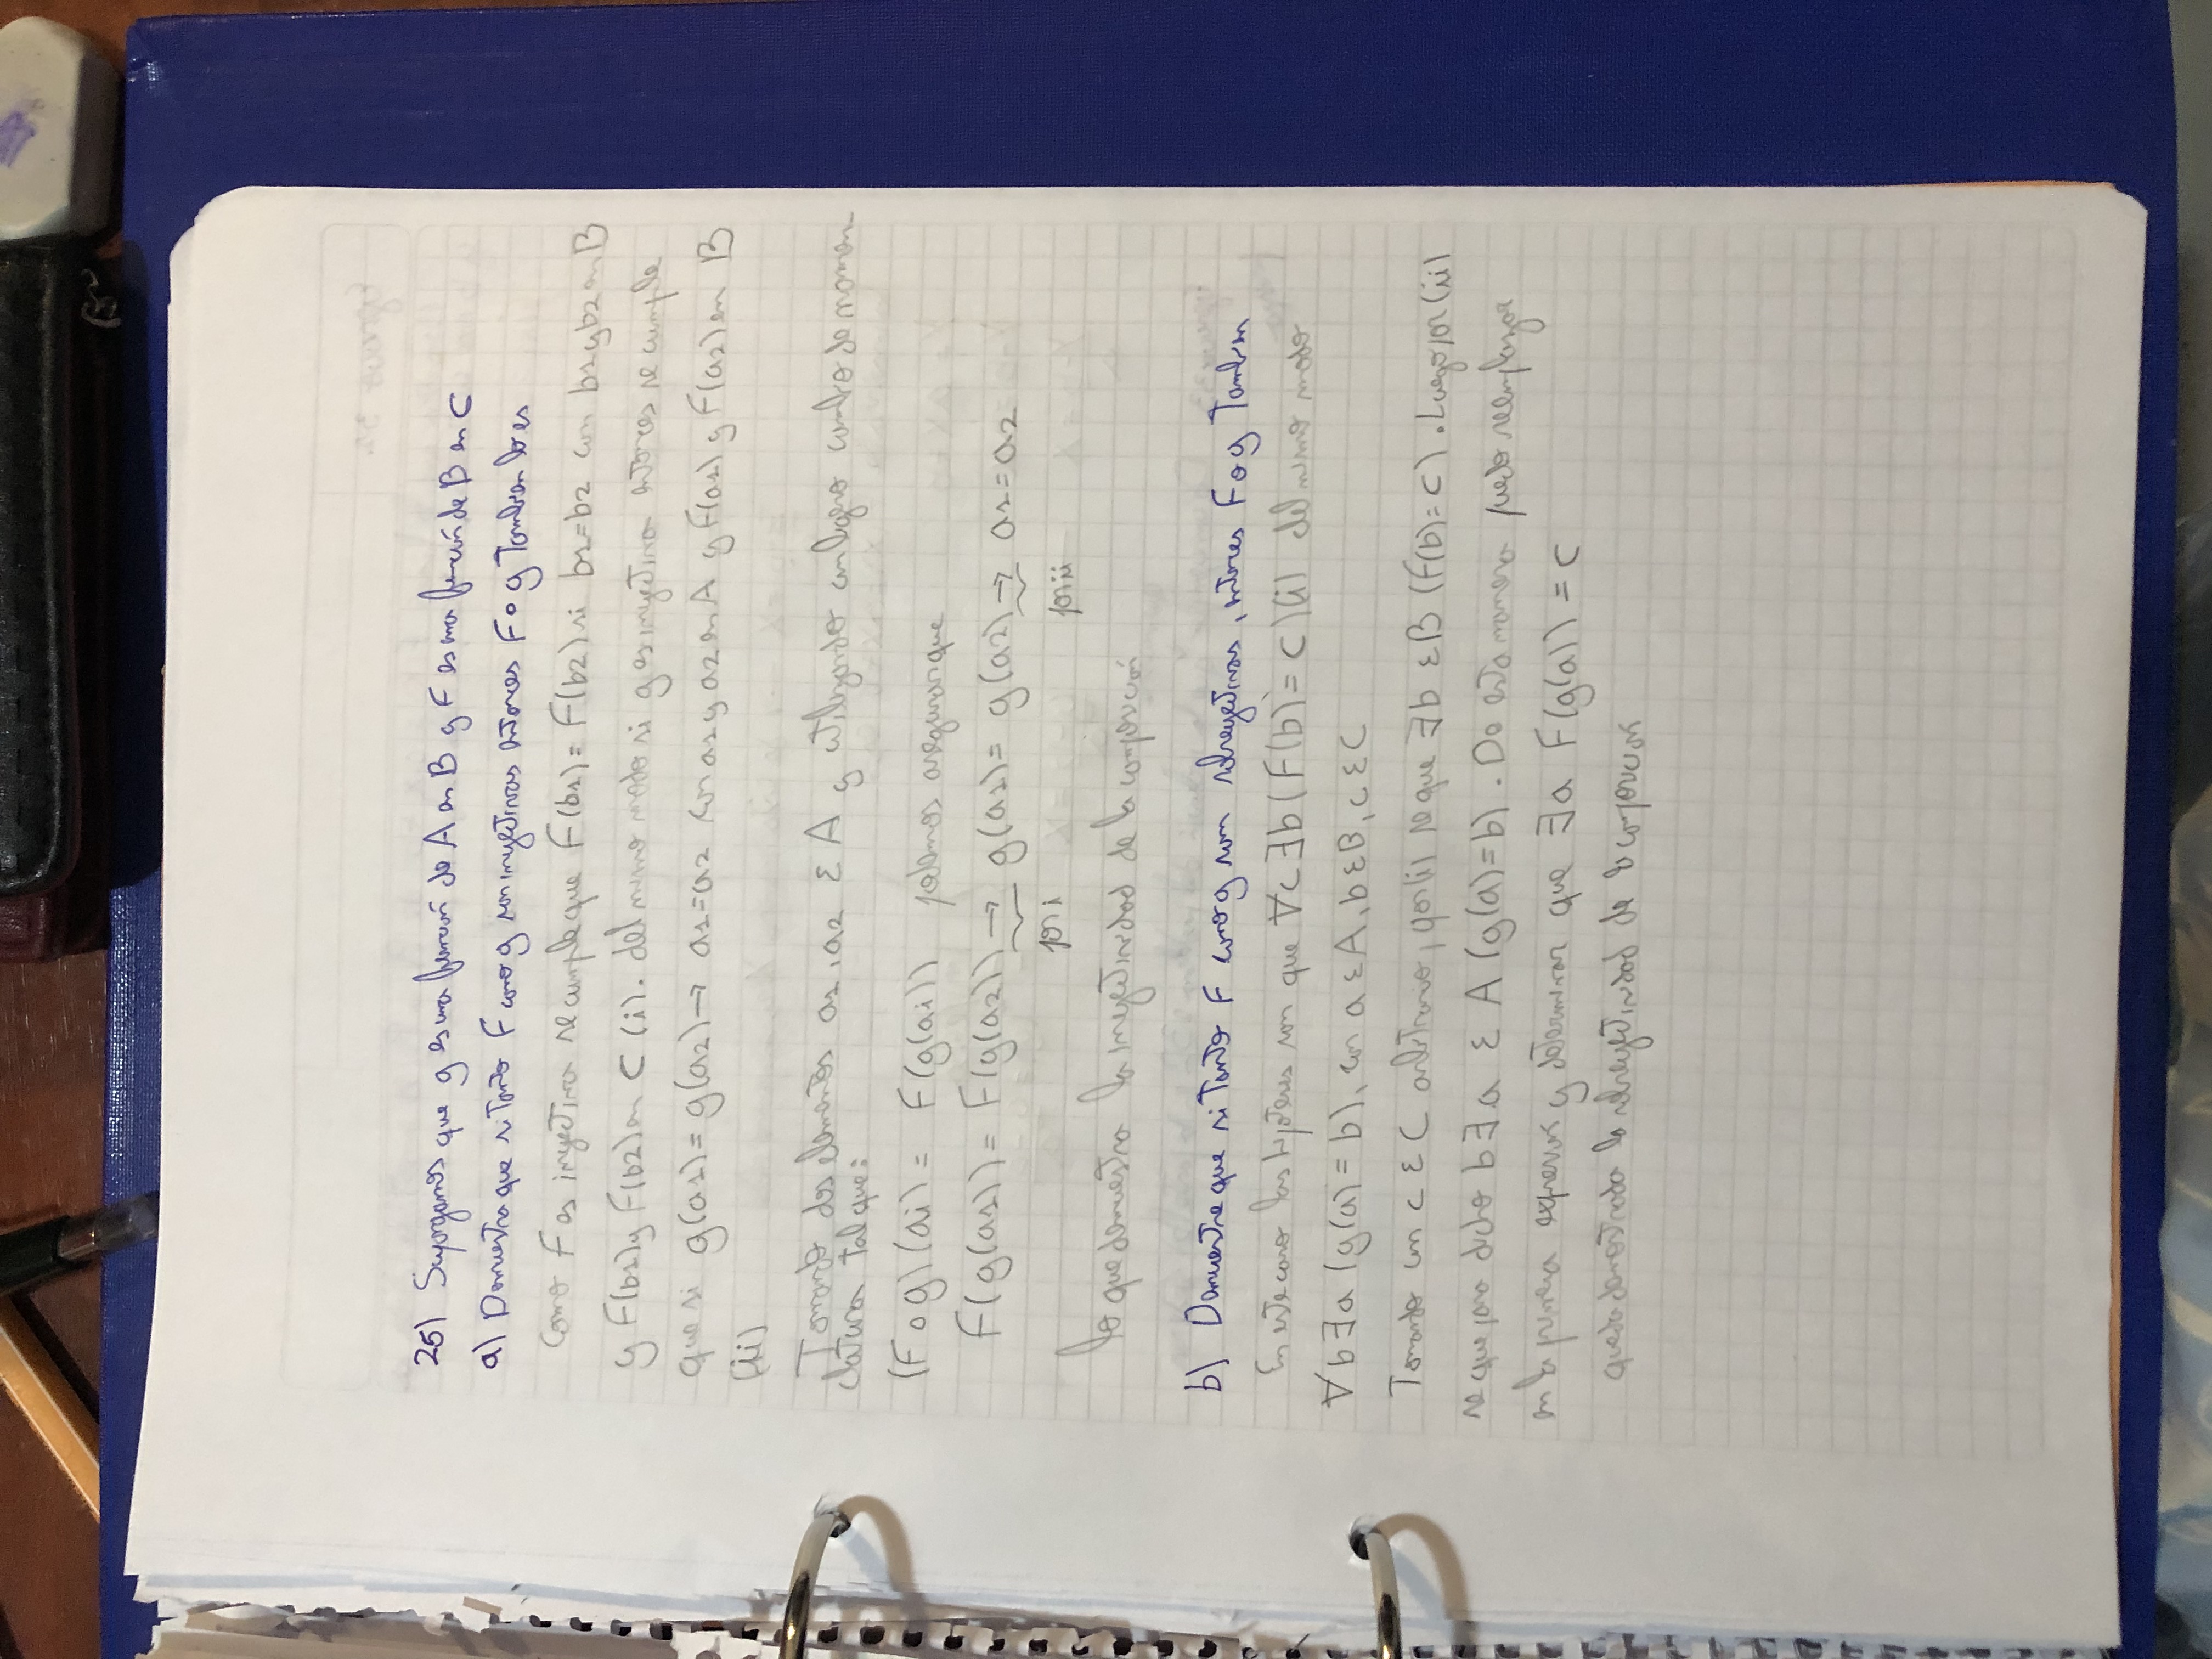 25) Supongamos que g es una función de A en B y F es una función de B en C
a) Demuestra que si tanto F como g son inyectivas entonces F∘g también lo es
Como F es inyectiva se cumple que F(b1) = F(b2) si b1=b2 con b1 y b2 en B
y F(b1) y F(b2) en C (i). del mismo modo si g es inyectiva entonces se cumple
que si g(a1) = g(a2) → a1=a2 con a1 y a2 en A y F(a1) y F(a2) en B
(ii)
Tomando dos elementos a1, a2 ε A y utilizando un ligero cambio de nomen-
clatura tal que:
(F∘g)(ai) = F(g(ai)) podemos asegurar que
F(g(a1)) = F(g(a2)) → g(a1) = g(a2) → a1=a2
por i por ii
lo que demuestra la inyectividad de la composición
b) Demuestre que si tanto F como g son sobreyectivas, entonces F∘g también
En este caso las hipótesis son que ∀c∃b (F(b) = c)(i) del mismo modo
∀b∃a (g(a) = b), con a ε A, b ε B, c ε C
Tomando un c ε C arbitrario, por (i) se que ∃b ε B (F(b) = c). Luego por (ii)
se que para dicho b ∃a ε A (g(a)=b). De esta manera puedo reemplazar
en la primera expresión y determinar que ∃a F(g(a)) = c
queda demostrada la sobreyectividad de la composición